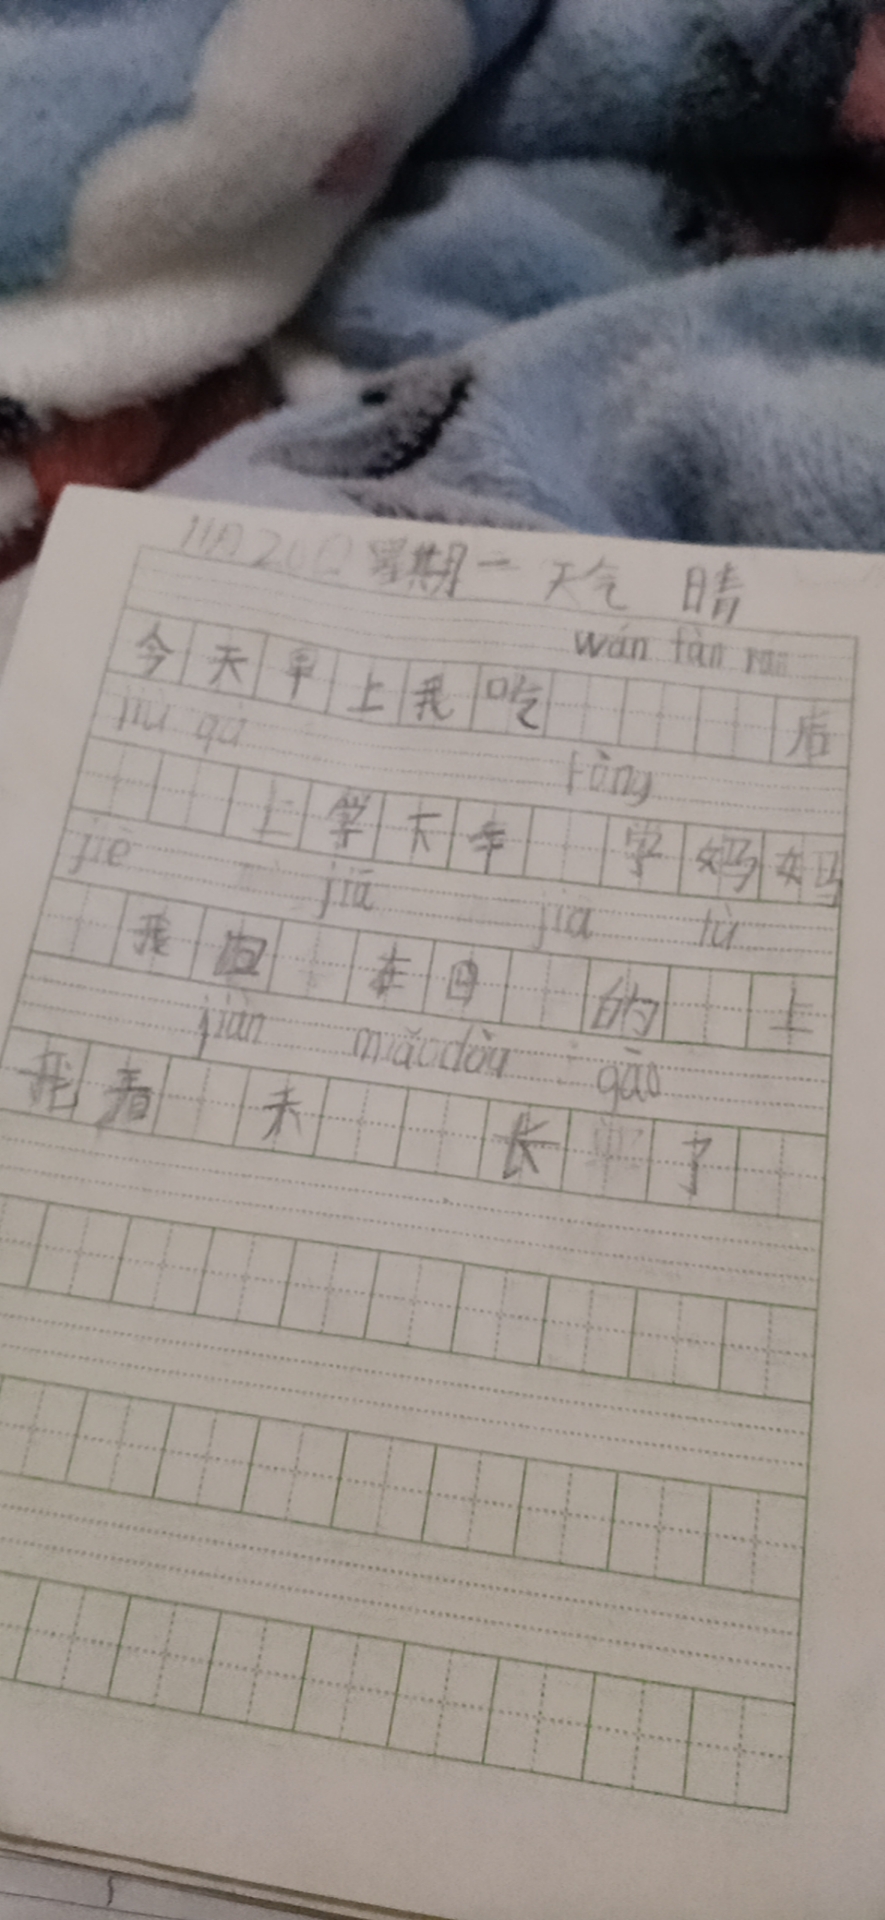 11月20日 星期一 天气 晴
wán fàn rán
今天早上我吃 后
jiù qù
fàng
上学下午 学妈妈
jiē jiā jiā lù
我回 在回 的 上
jiàn miáo dòu gāo
我看 禾 长 了